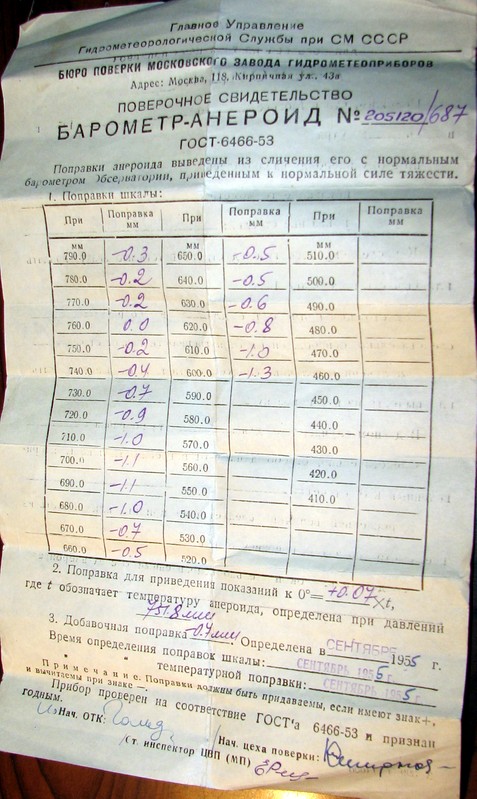 Главное Управление
Гидрометеорологической Службы при СМ СССР
БЮРО ПОВЕРКИ МОСКОВСКОГО ЗАВОДА ГИДРОМЕТЕОПРИБОРОВ
Адрес: Москва, 118, Кирпичная ул., 43а
ПОВЕРОЧНОЕ СВИДЕТЕЛЬСТВО
БАРОМЕТР-АНЕРОИД № 205120/687
ГОСТ-6466-53
Поправки анероида выведены из сличения его с нормальным
барометром Обсерватории, приведенным к нормальной силе тяжести.
1. Поправки шкалы:
При Поправка мм При Поправка мм При Поправка мм
мм мм мм
790.0 -0.3 650.0 -0.5 510.0
780.0 -0.2 640.0 -0.5 500.0
770.0 -0.2 630.0 -0.6 490.0
760.0 0.0 620.0 -0.8 480.0
750.0 -0.2 610.0 -1.0 470.0
740.0 -0.4 600.0 -1.3 460.0
730.0 -0.7 590.0 450.0
720.0 -0.9 580.0 440.0
710.0 -1.0 570.0 430.0
700.0 -1.1 560.0 420.0
690.0 -1.1 550.0 410.0
680.0 -1.0 540.0
670.0 -0.7 530.0
660.0 -0.5 520.0
2. Поправка для приведения показаний к 0°= +0.07 ×t,
где t обозначает температуру анероида, определена при давлений
751.8 мм
3. Добавочная поправка -0.7 мм. Определена в СЕНТЯБРЕ 1955 г.
Время определения поправок шкалы: СЕНТЯБРЬ 1955 г.
" " температурной поправки: СЕНТЯБРЬ 1955 г.
Примечание. Поправки должны быть придаваемы, если имеют знак+,
и вычитаемы при знаке —.
Прибор проверен на соответствие ГОСТ'а 6466-53 и признан
годным.
Нач. ОТК:
Нач. цеха поверки:
Ст. инспектор ЦВП (МП)